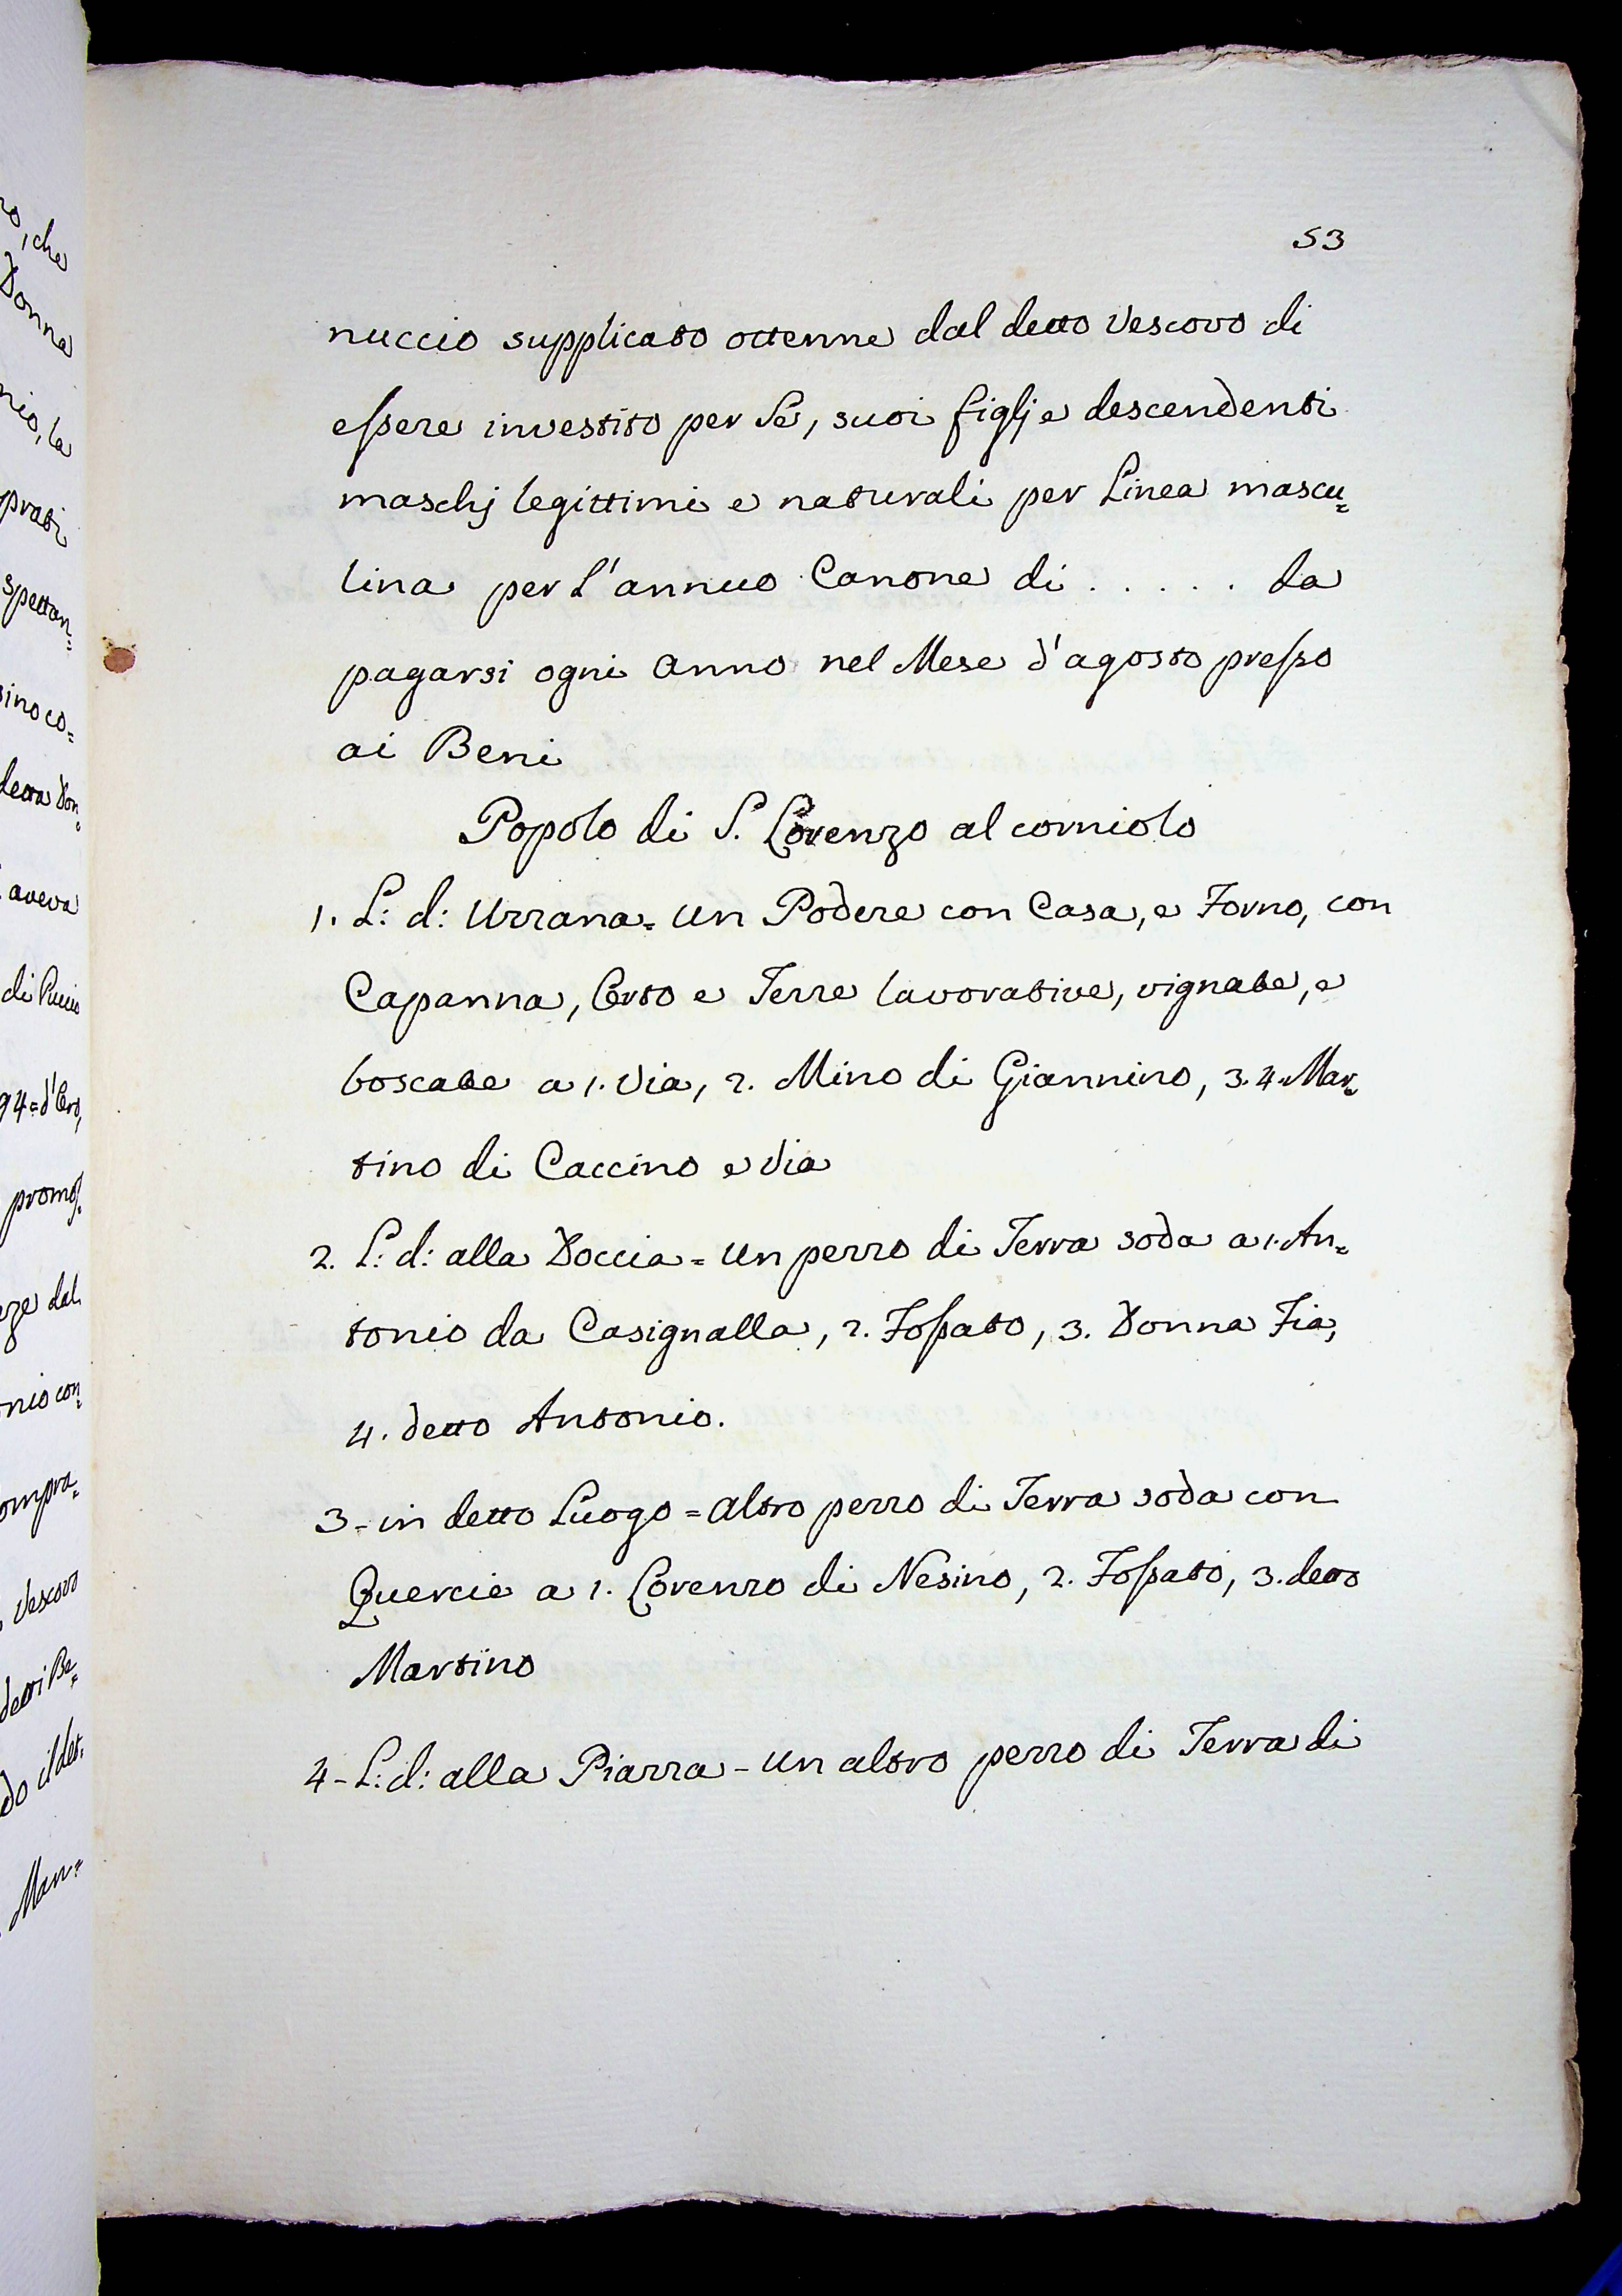 ro, che
Donna
nio, la
prati
spettan=
sino co=
detta Don=
aveva
di Puccio
94= d'Oro,
promos=
eze dal
nio con=
ompra=
Vescovo
detti Be=
do il det=
Man=
53
nuccio supplicato ottenne dal detto Vescovo di
eſsere investito per Se, suoi figlj e descendenti
maschj legittimi e naturali per Linea mascu=
lina per l'annuo Canone di . . . . . da
pagarsi ogni anno nel Mese d'agosto preſso
ai Beni
Popolo di S. Lorenzo al corniolo
1. L: d: Uzzana= un Podere con Casa, e Forno, con
Capanna, Orto e Terre lavorative, vignate, e
boscate a 1. Via, 2. Mino di Giannino, 3. 4. Mar=
tino di Caccino e Via
2. L: d: alla Doccia= un pezzo di Terra soda a 1. An=
tonio da Casignalla, 2. Foſsato, 3. Donna Fia,
4. detto Antonio.
3- in detto Luogo= altro pezzo di Terra soda con
Quercie a 1. Lorenzo di Nesino, 2. Foſsato, 3. detto
Martino
4- L: d: alla Piazza- un altro pezzo di Terra di